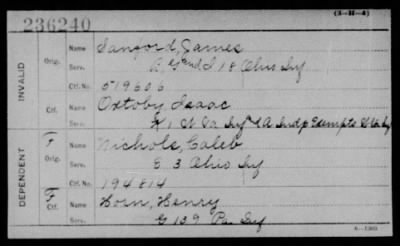 (3-H-4)
236240
INVALID
Orig. Name Sanford, James
Serv. A, 18 Ohio Inf
Ctf. No. 519606
Ctf. Name Oxtoby Isaac
Serv. K, 1 Inf & A Indp Exempts
DEPENDENT
Orig. Name Nichols, Caleb
Serv. E 3 Ohio Inf
Ctf. No. 194814
Ctf. Name Horn, Henry
Serv. G 139 Pa. Inf